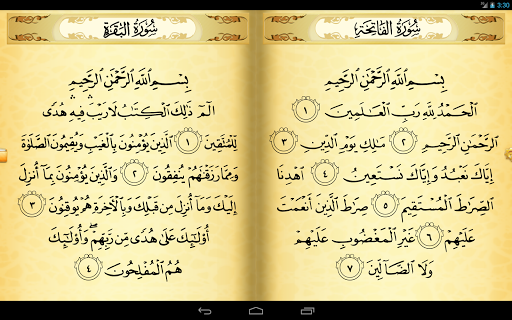 3:30
سُورَةُ الفَاتِحَة
بِسْمِ اللَّهِ الرَّحْمَٰنِ الرَّحِيمِ
الْحَمْدُ لِلَّهِ رَبِّ الْعَٰلَمِينَ ١
الرَّحْمَٰنِ الرَّحِيمِ ٢ مَٰلِكِ يَوْمِ الدِّينِ ٣
إِيَّاكَ نَعْبُدُ وَإِيَّاكَ نَسْتَعِينُ ٤ اهْدِنَا
الصِّرَٰطَ الْمُسْتَقِيمَ ٥ صِرَٰطَ الَّذِينَ أَنْعَمْتَ
عَلَيْهِمْ ٦ غَيْرِ الْمَغْضُوبِ عَلَيْهِمْ
وَلَا الضَّالِّينَ ٧
سُورَةُ البَقَرَة
بِسْمِ اللَّهِ الرَّحْمَٰنِ الرَّحِيمِ
الٓمٓ ذَٰلِكَ الْكِتَٰبُ لَا رَيْبَ ۛ فِيهِ ۛ هُدًى
لِّلْمُتَّقِينَ ١ الَّذِينَ يُؤْمِنُونَ بِالْغَيْبِ وَيُقِيمُونَ الصَّلَوٰةَ
وَمِمَّا رَزَقْنَٰهُمْ يُنفِقُونَ ٢ وَالَّذِينَ يُؤْمِنُونَ بِمَآ أُنزِلَ
إِلَيْكَ وَمَآ أُنزِلَ مِن قَبْلِكَ وَبِالْآخِرَةِ هُمْ يُوقِنُونَ ٣
أُو۟لَٰٓئِكَ عَلَىٰ هُدًى مِّن رَّبِّهِمْ ۖ وَأُو۟لَٰٓئِكَ
هُمُ الْمُفْلِحُونَ ٤